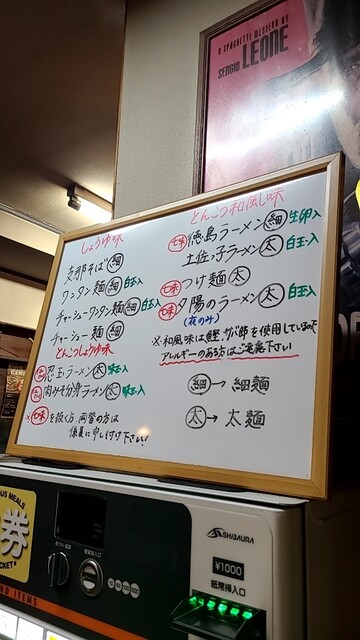 A SPAGHETTI WESTERN BY
SERGIO LEONE
しょうゆ味
支那そば 細
ワンタン麺 細 白玉入
チャーシューワンタン麺 細 白玉入
チャーシュー麺 細
とんこつしょうゆ味
忍玉ラーメン 太 味玉入
肉みそ分身ラーメン 太 味玉入
※ 七味 を抜く方、同答の方は
係員に申し付け下さい!
とんこつ和風味
七味 徳島ラーメン 細 生卵入
土佐っ子ラーメン 太 白玉入
七味 つけ麺 太
七味 夕陽のラーメン 太 白玉入
(夜のみ)
※和風味は鰹、サバ節を使用しているので
アレルギーのある方はご注意下さい
細→細麺
太→太麺
券
MEALS
TICKET
ITEMS
SHIBAURA
¥1000
紙幣挿入口
硬貨投入口